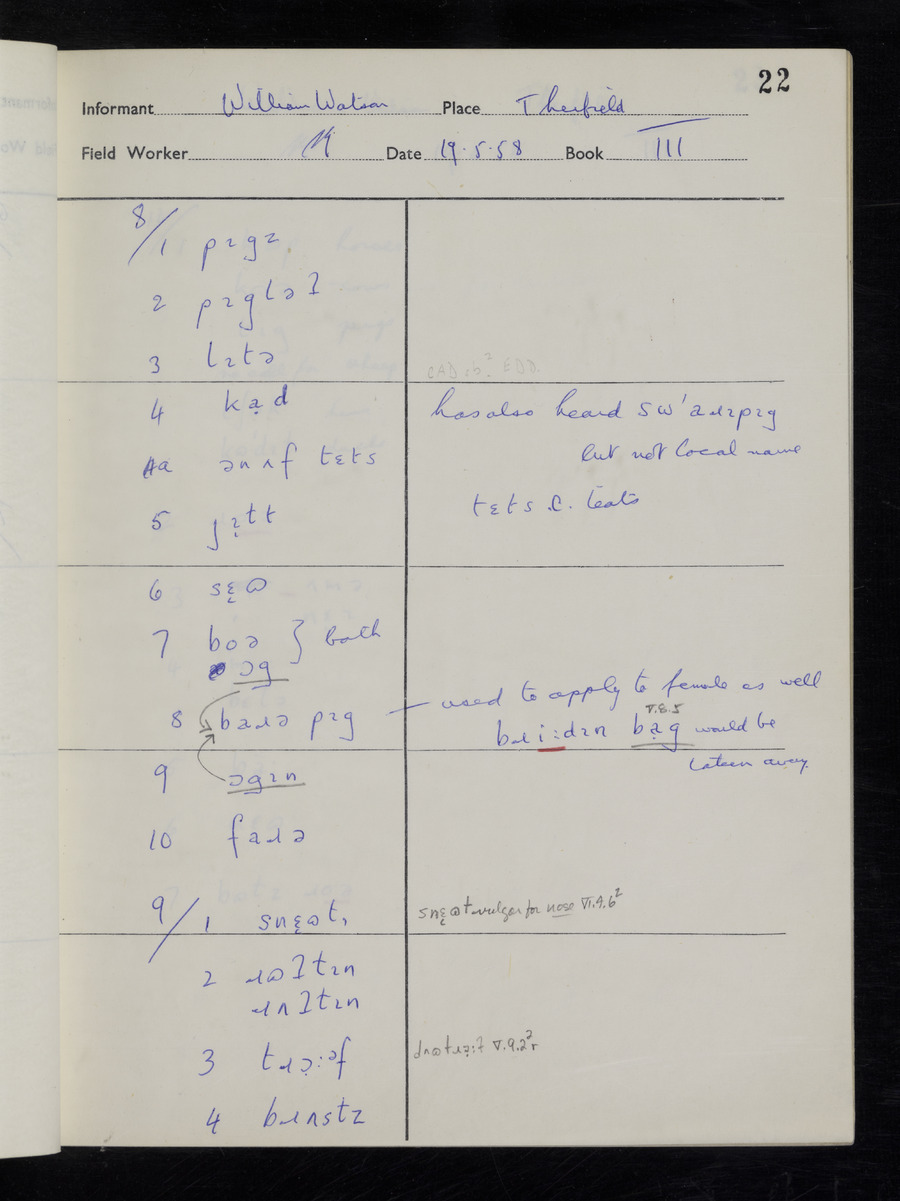 22
Informant William Watson Place Therfield
Field Worker Date 19.5.58 Book III
8/1 pɪgz
2 pɪgləʔ
3 lɪtə
4 kạd has also heard sw'aɹɪpɪg
but not local name
4a ənʌf tɛts
tɛts c. teats
5 jɪ̣tt
6 sɛ̣ɷ
7 boə } both
ɔg
8 baɹə pɪg — used to apply to female as well
V.8.5
bɹi:dɪn bạg would be
eaten away
9 ɔgɪn
10 faɹə
9/1 snɛ̣ɷt snɛ̣ɷt vulgar for nose VI.4.6²
2 ɹɷʔtɪn
ɹʌʔtɪn
3 tɹɔ̣:əf V.9.2²
4 bɹʌstz